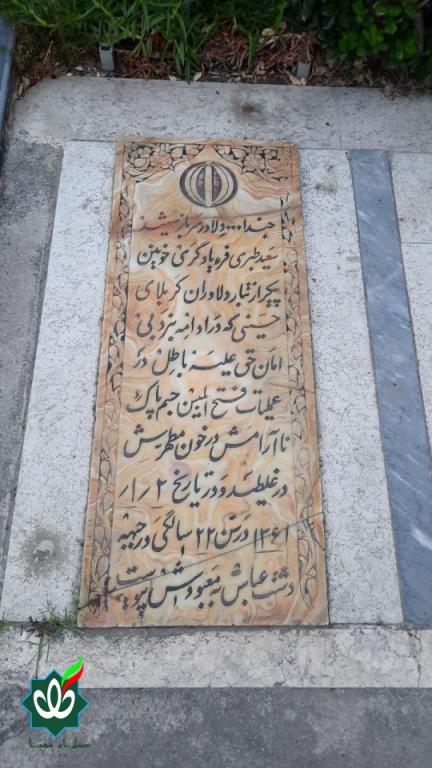 دلاور سرباز شهید
سعید طبری فریادگری خونین
پیکر از تبار دلاوران کربلای
حسینی که در ادامه نبرد بی
امان حق علیه باطل در
عملیات فتح المبین جسم پاک
ناآرامش در خون مطهرش
در غلطید و در تاریخ ۲/۱/
۱۳۶۱ در سن ۲۲ سالگی در جبهه
دشت عباس به معبودش پیوست